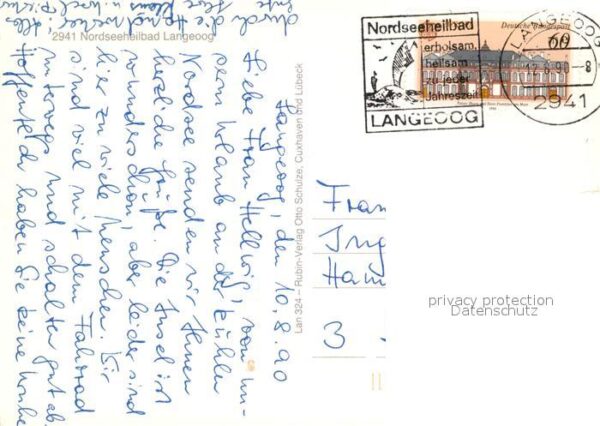 2941 Nordseeheilbad Langeoog
Langeoog, den 10.8.90
Liebe Frau Hellwig, von un-
serm Urlaub an der kühlen
Nordsee senden wir Ihnen
herzliche Grüße. Die Insel ist
wunderschön, aber leider sind
hier zu viele Menschen. Wir
sind viel mit dem Fahrrad
unterwegs und schalten gut ab.
Hoffentlich haben Sie keine
durch die
Lan 324 – Rubin-Verlag Otto Schulze, Cuxhaven und Lübeck
Nordseeheilbad
erholsam,
heilsam
zu jeder
Jahreszeit
LANGEOOG
Deutsche Bundespost
60
LANGEOOG
2941
Fran
Ing
Ham
3
privacy protection
Datenschutz